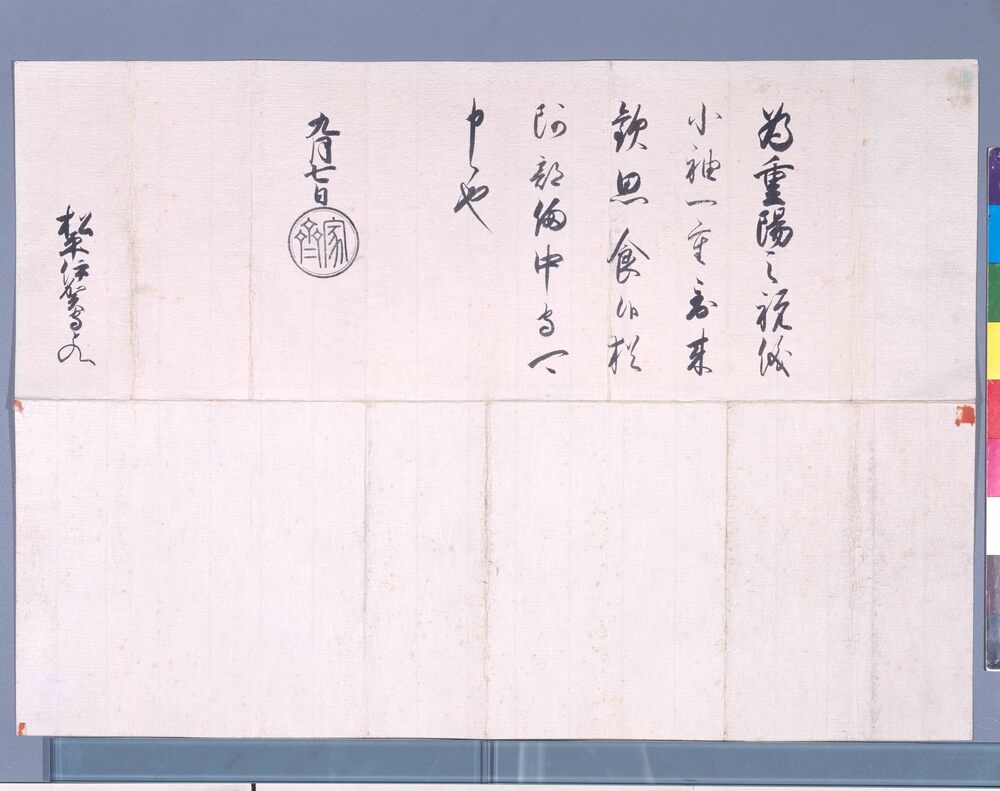 為重陽之祝儀
小袖一重到来
歓思食候猶
阿部備中守可
申候也
九月七日
家齊
松平伊賀守とのへ